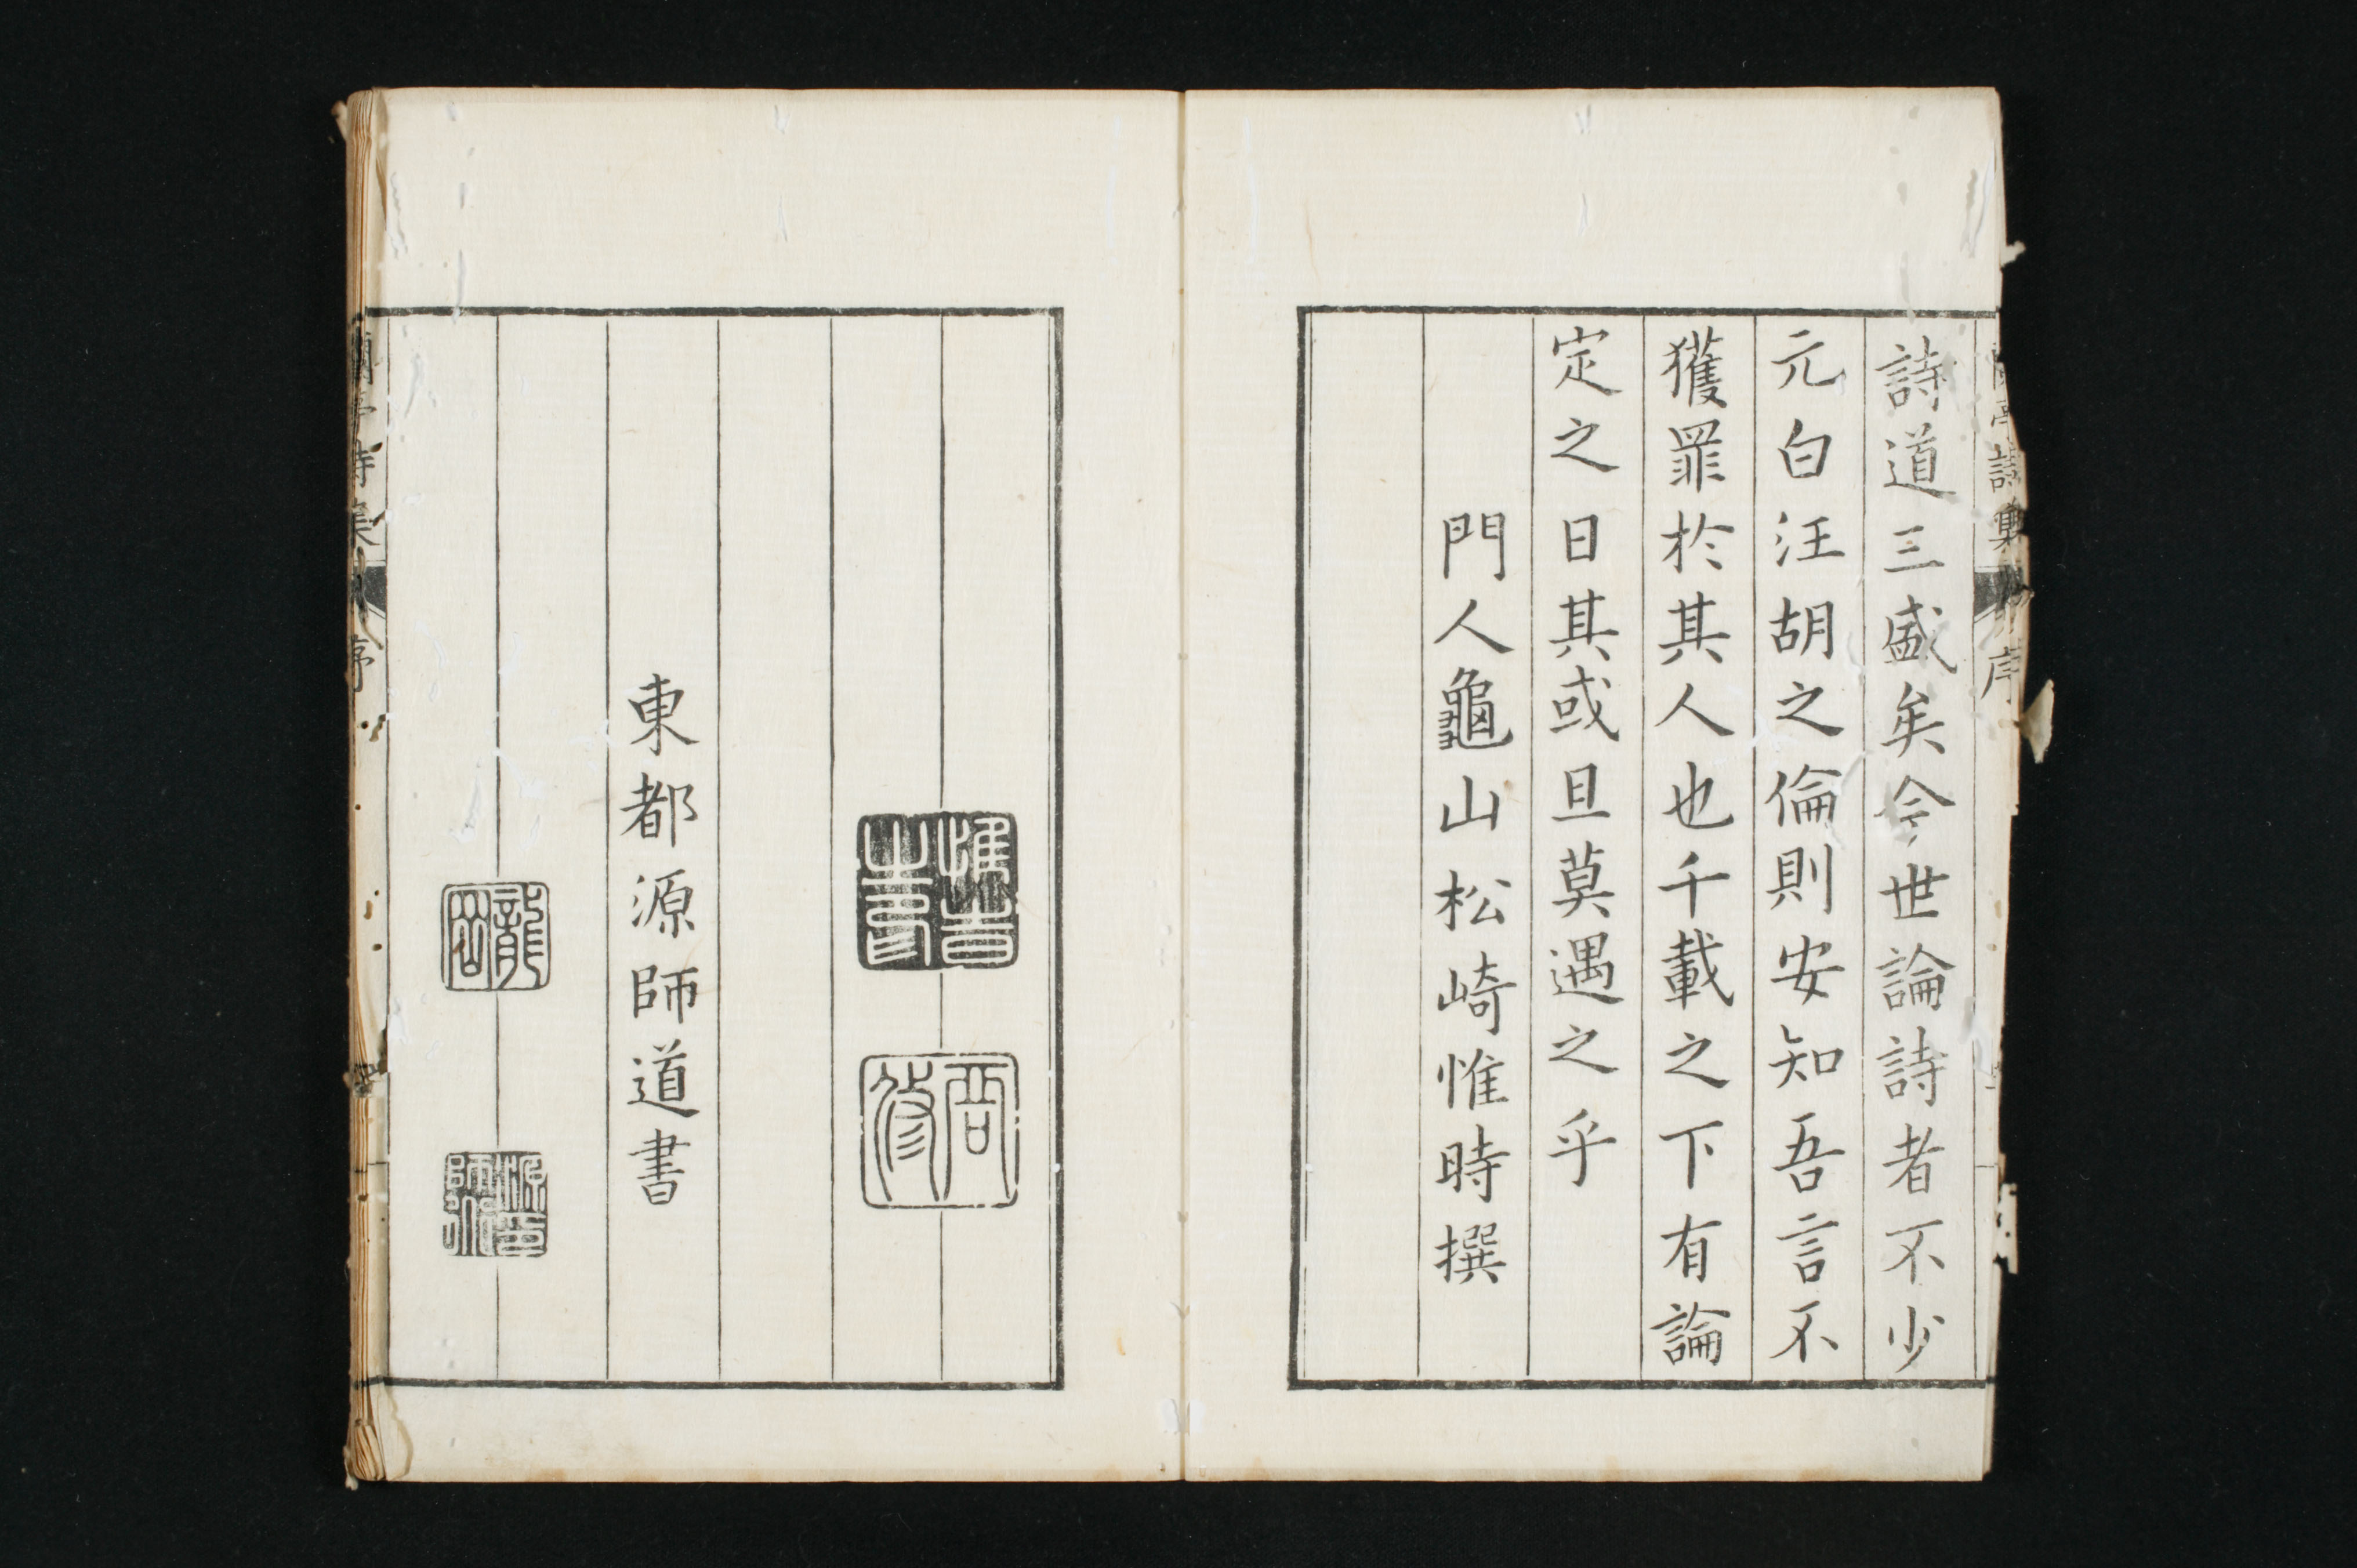 詩道三盛矣今世論詩者不少
元白汪胡之倫則安知吾言不
獲罪於其人也千載之下有論
定之日其或旦莫遇之乎
門人龜山松崎惟時撰
東都源師道書
龍
源
師道